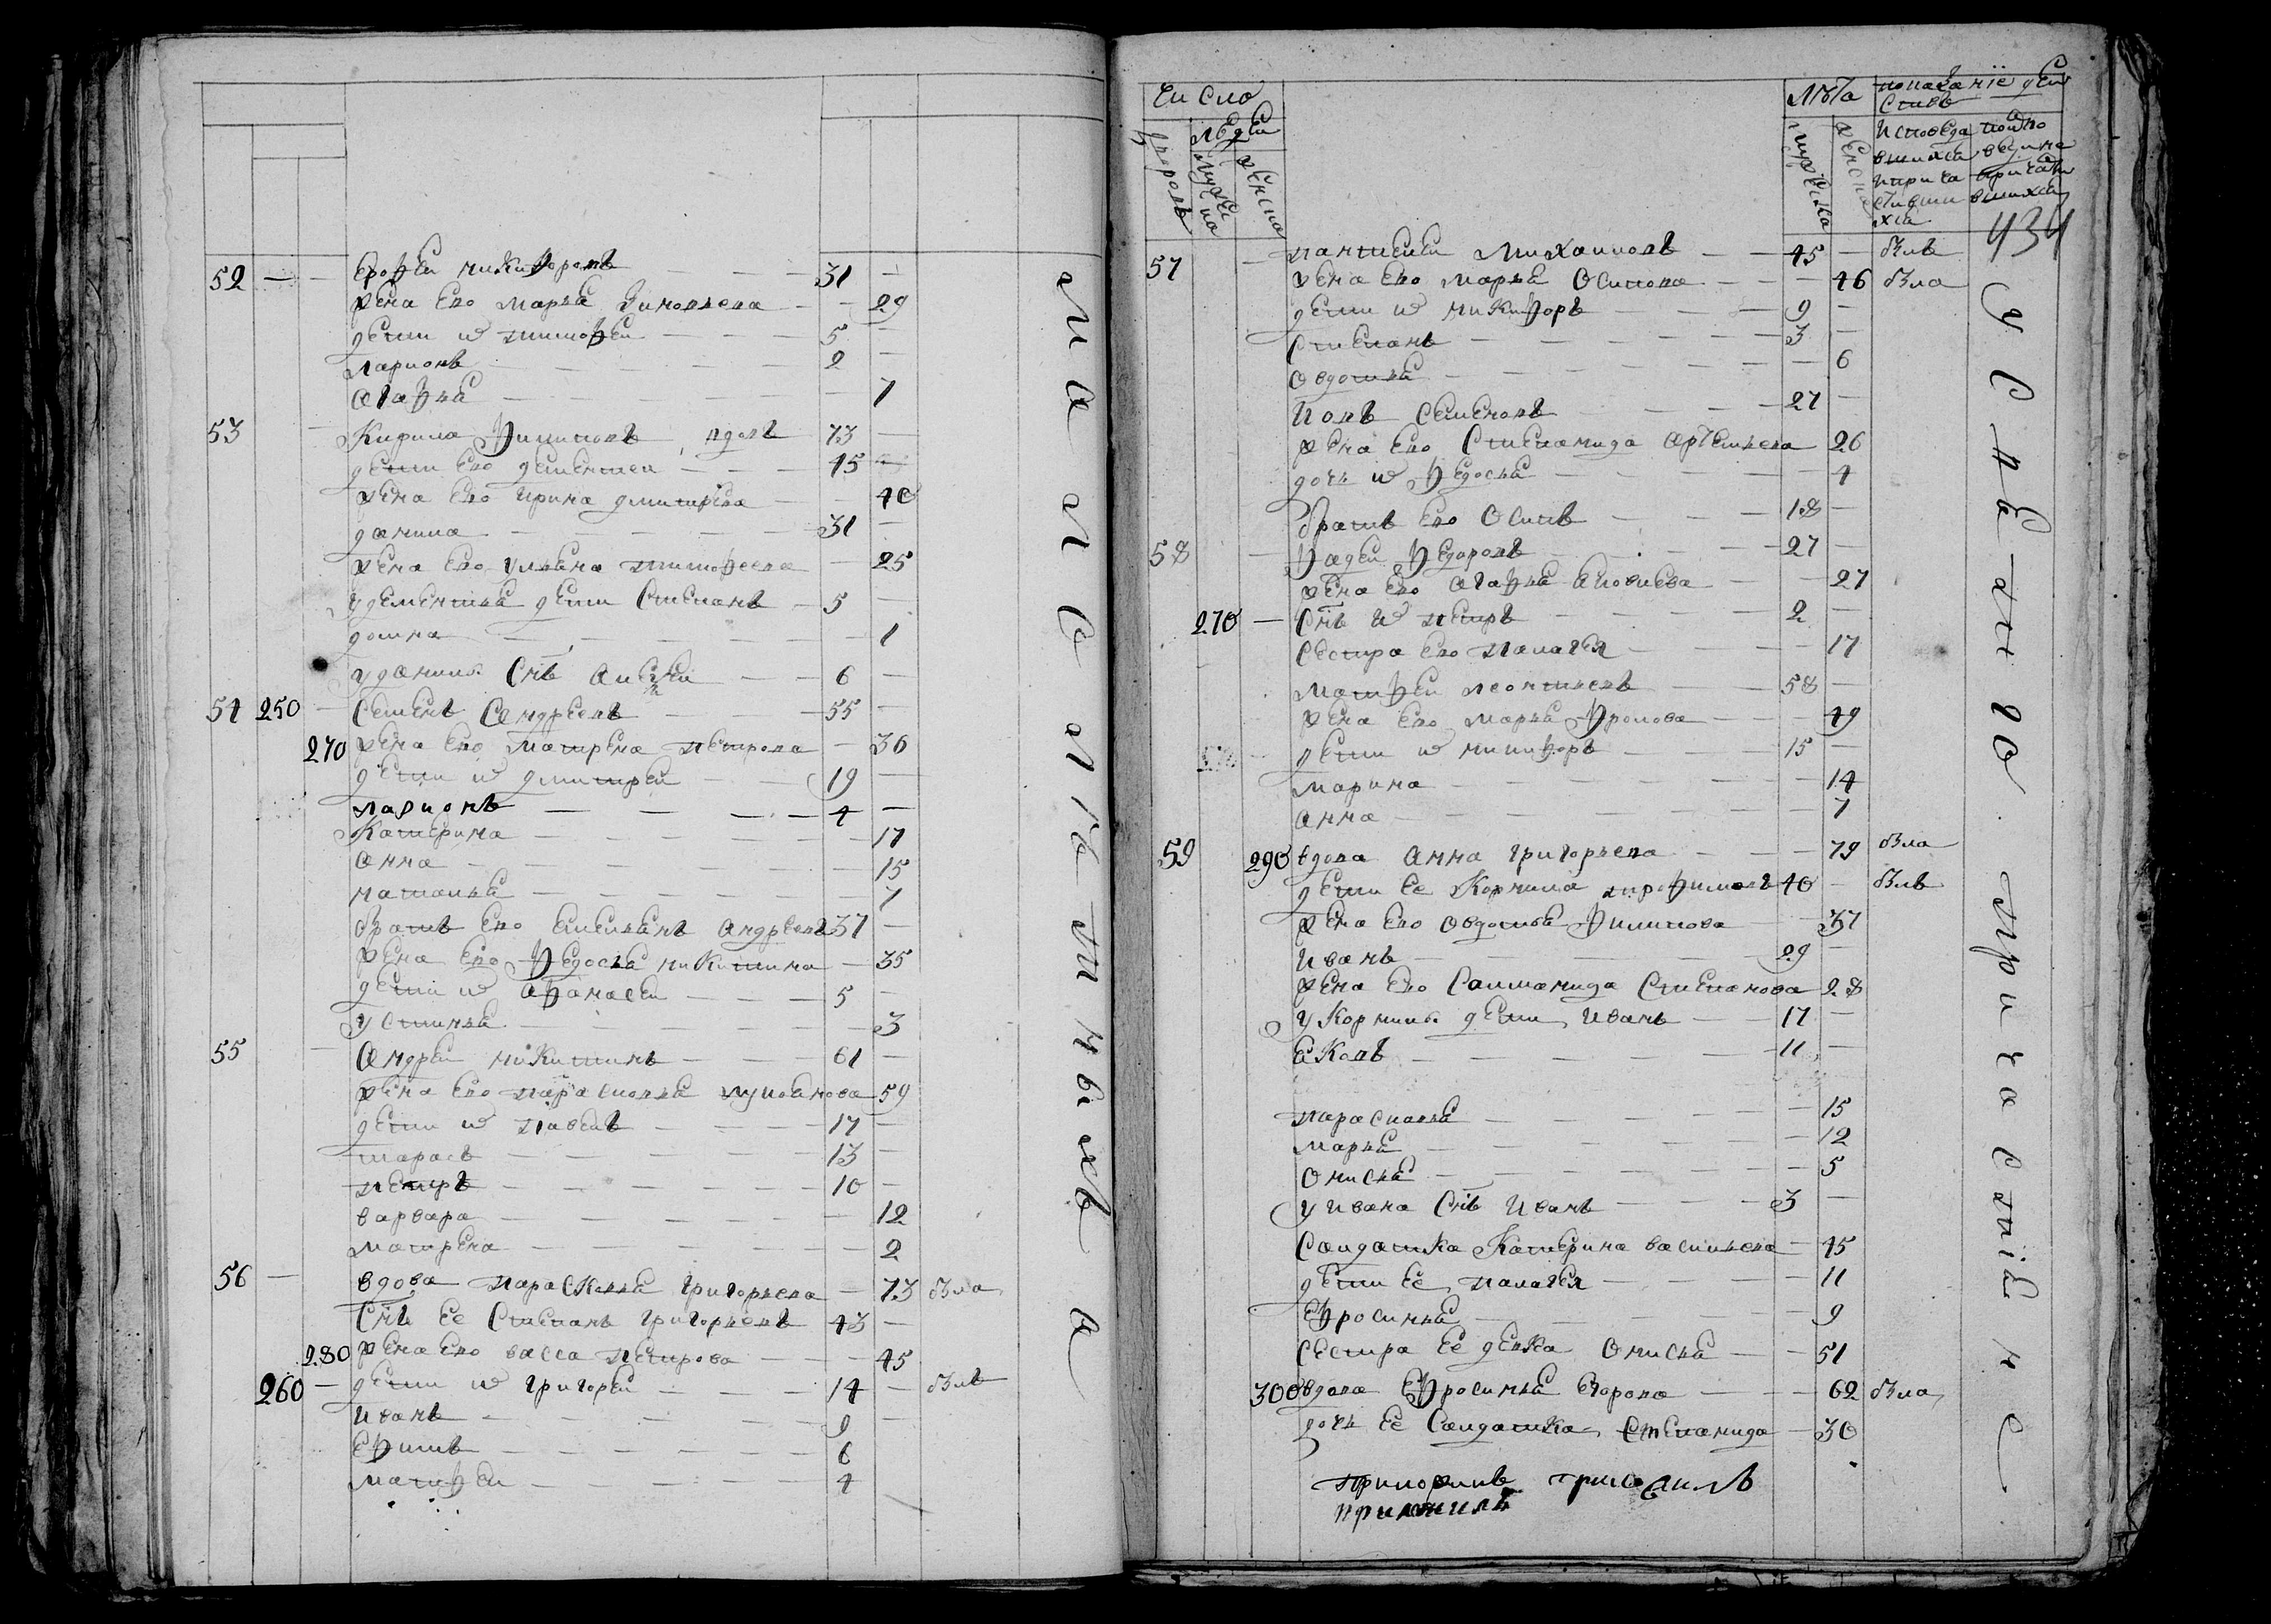 52 — — Ерофеи никифоровъ — 31 —
жена его марья Зиновьева — 29
дети их тимофеи — 5 —
ларионъ — 2 —
агафья — 7
53 — Кирила филиповъ вдовъ 73 —
дети его дементеи — 45 —
жена его ирина дмитрева — 40
данила — 31 —
жена его ульяна тимофеева — 25
у дементья дети степанъ — 5 —
домна — 1
у данилы снъ алексеи — 6 —
54 250 — семенъ андреевъ — 55 —
270 жена его матрена петрова — 36
дети их дмитреи — 19 —
ларионъ — 4 —
Катерина — 17
анна — 15
наталья — 7
братъ его емельянъ андреевъ 37 —
жена его федосья никитина — 35
дети их афанасеи — 5 —
устинья — 3
55 — андреи никитинъ — 61 —
жена его парасковья лукьянова 59
дети их павелъ — 17 —
тарасъ — 13 —
петръ — 10 —
варвара — 12
матрена — 2
56 — вдова парасковья григорьева — 73 была
снъ ее степанъ григорьевъ 43 —
280 жена его васса петрова — 45
260 — дети их григореи — 14 — былъ
иванъ — 9 —
ефимъ — 6
матфеи — 4
малолетныхъ а
число
дворовъ
людеи
мужеска
женска
лѣта
мужеска
женска
показание деи
ствъ
исповеда
вшихся
и прича
стивши
хся
434
57 — пантелеи михаиловъ — 45 — былъ
жена его марья осипова — 46 была
дети их никифоръ — 9 —
степанъ — 3 —
овдотья — 6
иовъ семеновъ — 27 —
жена его степанида артемьева 26
дочь их федосья — 4
братъ его осипъ — 18 —
58 — фадеи федоровъ — 27 —
жена его агафья — 27
270 — снъ их петръ — 2 —
сестра его палагея — 17
матфеи леонтьевъ — 58 —
жена его марья фролова — 49
дети их никифоръ — 15 —
марина — 14
анна — 7
59 290 вдова анна григорьева — 79 была
дети ее Корнила трофимовъ 40 — былъ
жена его овдотья филипова — 37
иванъ — 29 —
жена его соломанида степанова 28
у Корнилы дети иванъ — 17 —
яковъ — 11 —
парасковья — 15
марья — 12
онисья — 5
у ивана снъ иванъ — 3 —
салдатка Катерина васильева — 45
дети ее палагея — 11
ефросинья — 9
сестра ее девка онисья — 51
300 вдова ефросинья — 62 была
дочь ее салдатка степанида — 30
приложилъ
у исповеди и причастие